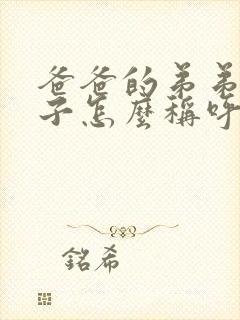 爸爸的弟弟
子怎麼稱呼
銘希